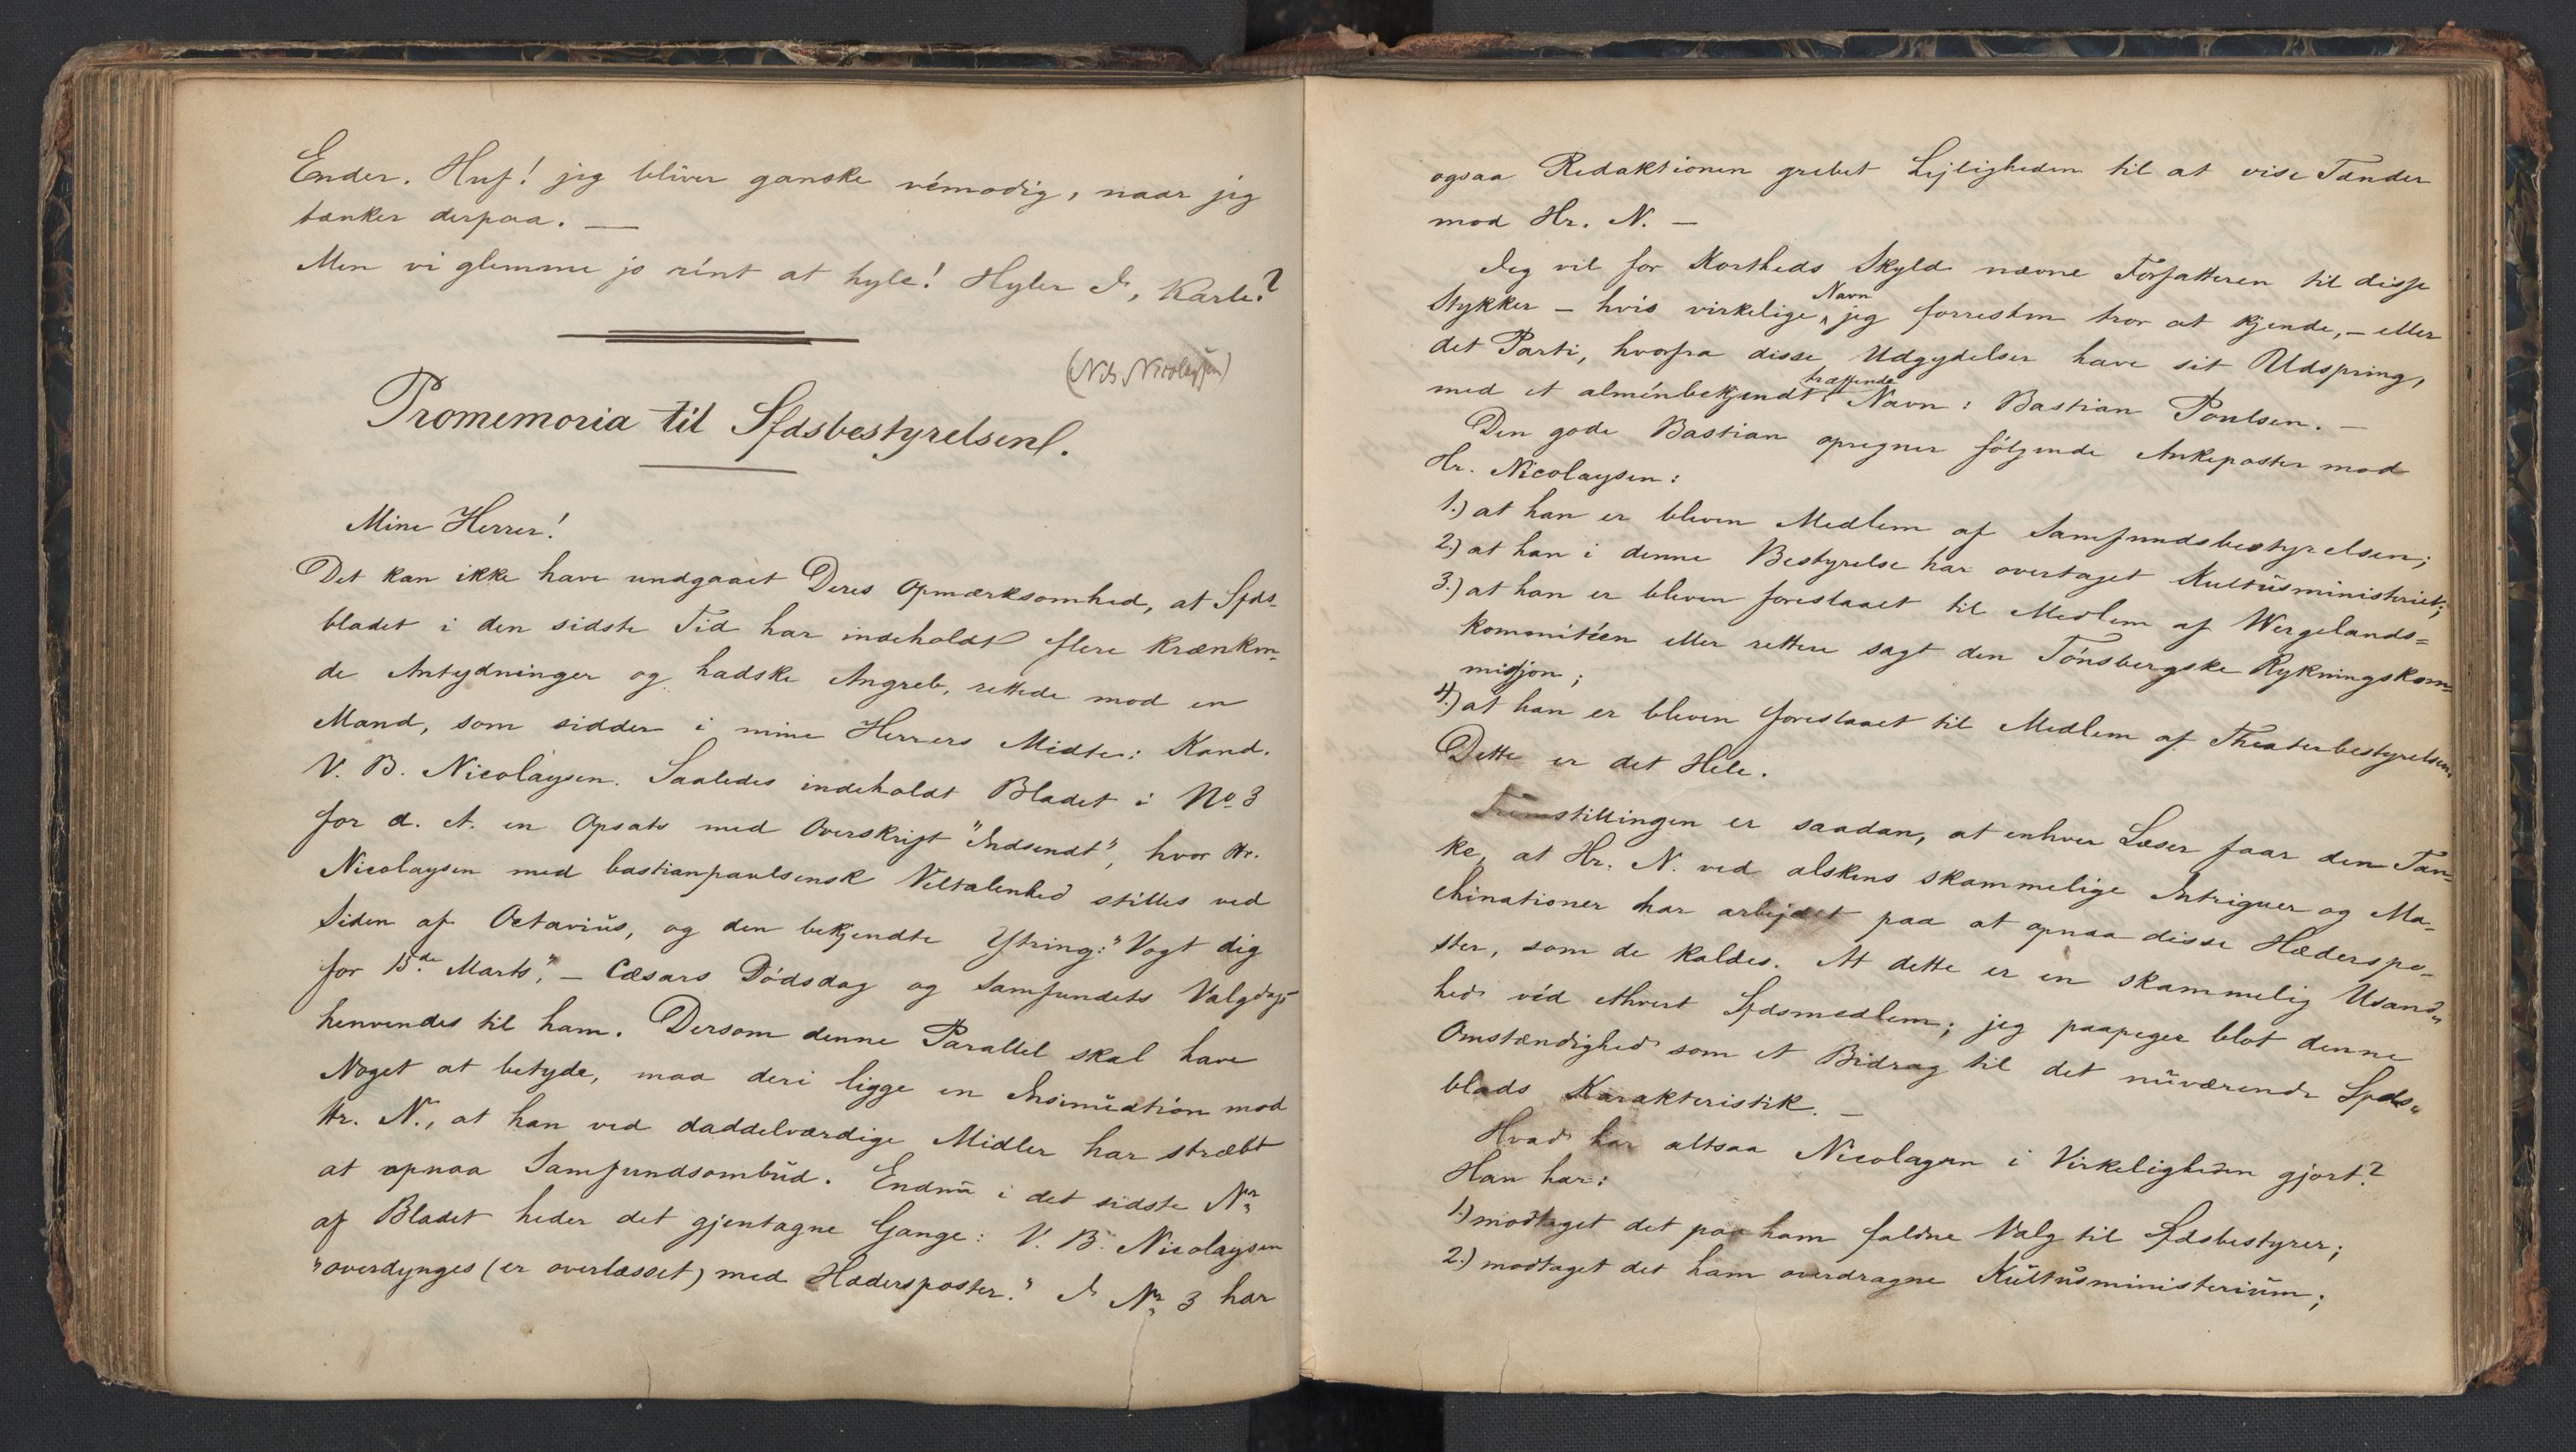 Ender. Huf! jeg bliver ganske vémodig, naar jeg
tænker derpaa. —
Men vi glemme jo rént at hyle! Hyler I, Karle?
(Nils Nicolaysen)
Promemoria til Sfdsbestyrelsen.
Mine Herrer!
Det kan ikke have undgaaet Deres Opmærksomhed, at Sfds-
bladet i den sidste Tid har indeholdt flere krænken-
de Antydninger og hadske Angreb, rettede mod en
Mand, som sidder i mine Herrers Midte: Kand.
V. B. Nicolaysen. Saaledes indeholdt Bladet i No 3
for d. A. en Opsats med Overskrift "Indsendt", hvor Hr.
Nicolaysen med bastianpaulsensk Veltalenhed stilles ved
Siden af Octavius, og den bekjendte Ytring: "Vogt dig
for 15de Marts", — Cæsars Dödsdag og Samfundets Valgdag —
henvendes til ham. Dersom denne Parallel skal have
Noget at betyde, maa deri ligge en Insinuation mod
Hr. N., at han ved daddelværdige Midler har stræbt
at opnaa Samfundsombud. Endnu i det sidste Nr.
af Bladet heder det gjentagne Gange: V. B. Nicolaysen
"overdynges (er overlæsset) med Hædersposter." I Nr. 3 har
ogsaa Redaktionen grebet Lejligheden til at vise Tænder
mod Hr. N. —
Jeg vil for Kortheds Skyld nævne Forfatteren til disse
Stykker — hvis virkelige Navn jeg forresten tror at kjende, — eller
det Parti, hvorfra disse Udgydelser have sit Udspring,
med et alménbekjendt træffende Navn: Bastian Poulsen. —
Den gode Bastian opregner fölgende Ankeposter mod
Hr. Nicolaysen:
1.) at han er bleven Medlem af Samfundsbestyrelsen;
2.) at han i denne Bestyrelse har overtaget Kultusministeriet;
3.) at han er bleven foreslaaet til Medlem af Wergelands=
kommitéen eller rettere sagt den Tönsbergske Rykningskom-
missjon;
4.) at han er bleven foreslaaet til Medlem af Theaterbestyrelsen.
Dette er det Hele.
Fremstillingen er saadan, at enhver Læser faar den Tan-
ke, at Hr. N. ved alskens skammelige Intriguer og Ma-
chinationer har arbejdet paa at opnaa disse Hæderspo-
ster, som de kaldes. At dette er en skammelig Usand-
hed véd ethvert Sfdsmedlem; jeg paapeger blot denne
Omstændighed som et Bidrag til det nuværende Sfds-
blads Karakteristik. —
Hvad har altsaa Nicolaysen i Virkeligheden gjort?
Han har:
1.) modtaget det paa ham faldne Valg til Sfdsbestyrer;
2.) modtaget det ham overdragne Kultusministerium;